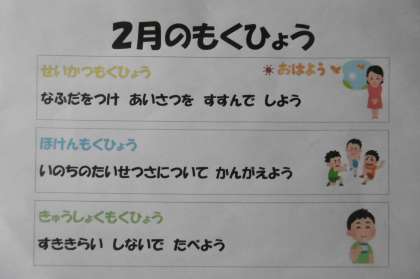 2月のもくひょう
せいかつもくひょう
おはよう
なふだをつけ あいさつを すすんで しよう
ほけんもくひょう
いのちのたいせつさについて かんがえよう
きゅうしょくもくひょう
すききらい しないで たべよう